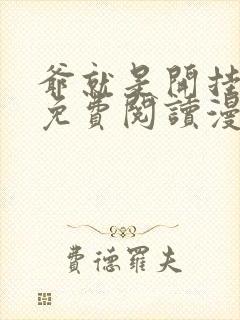 爺就是開挂
免費閱讀漫
費德羅夫